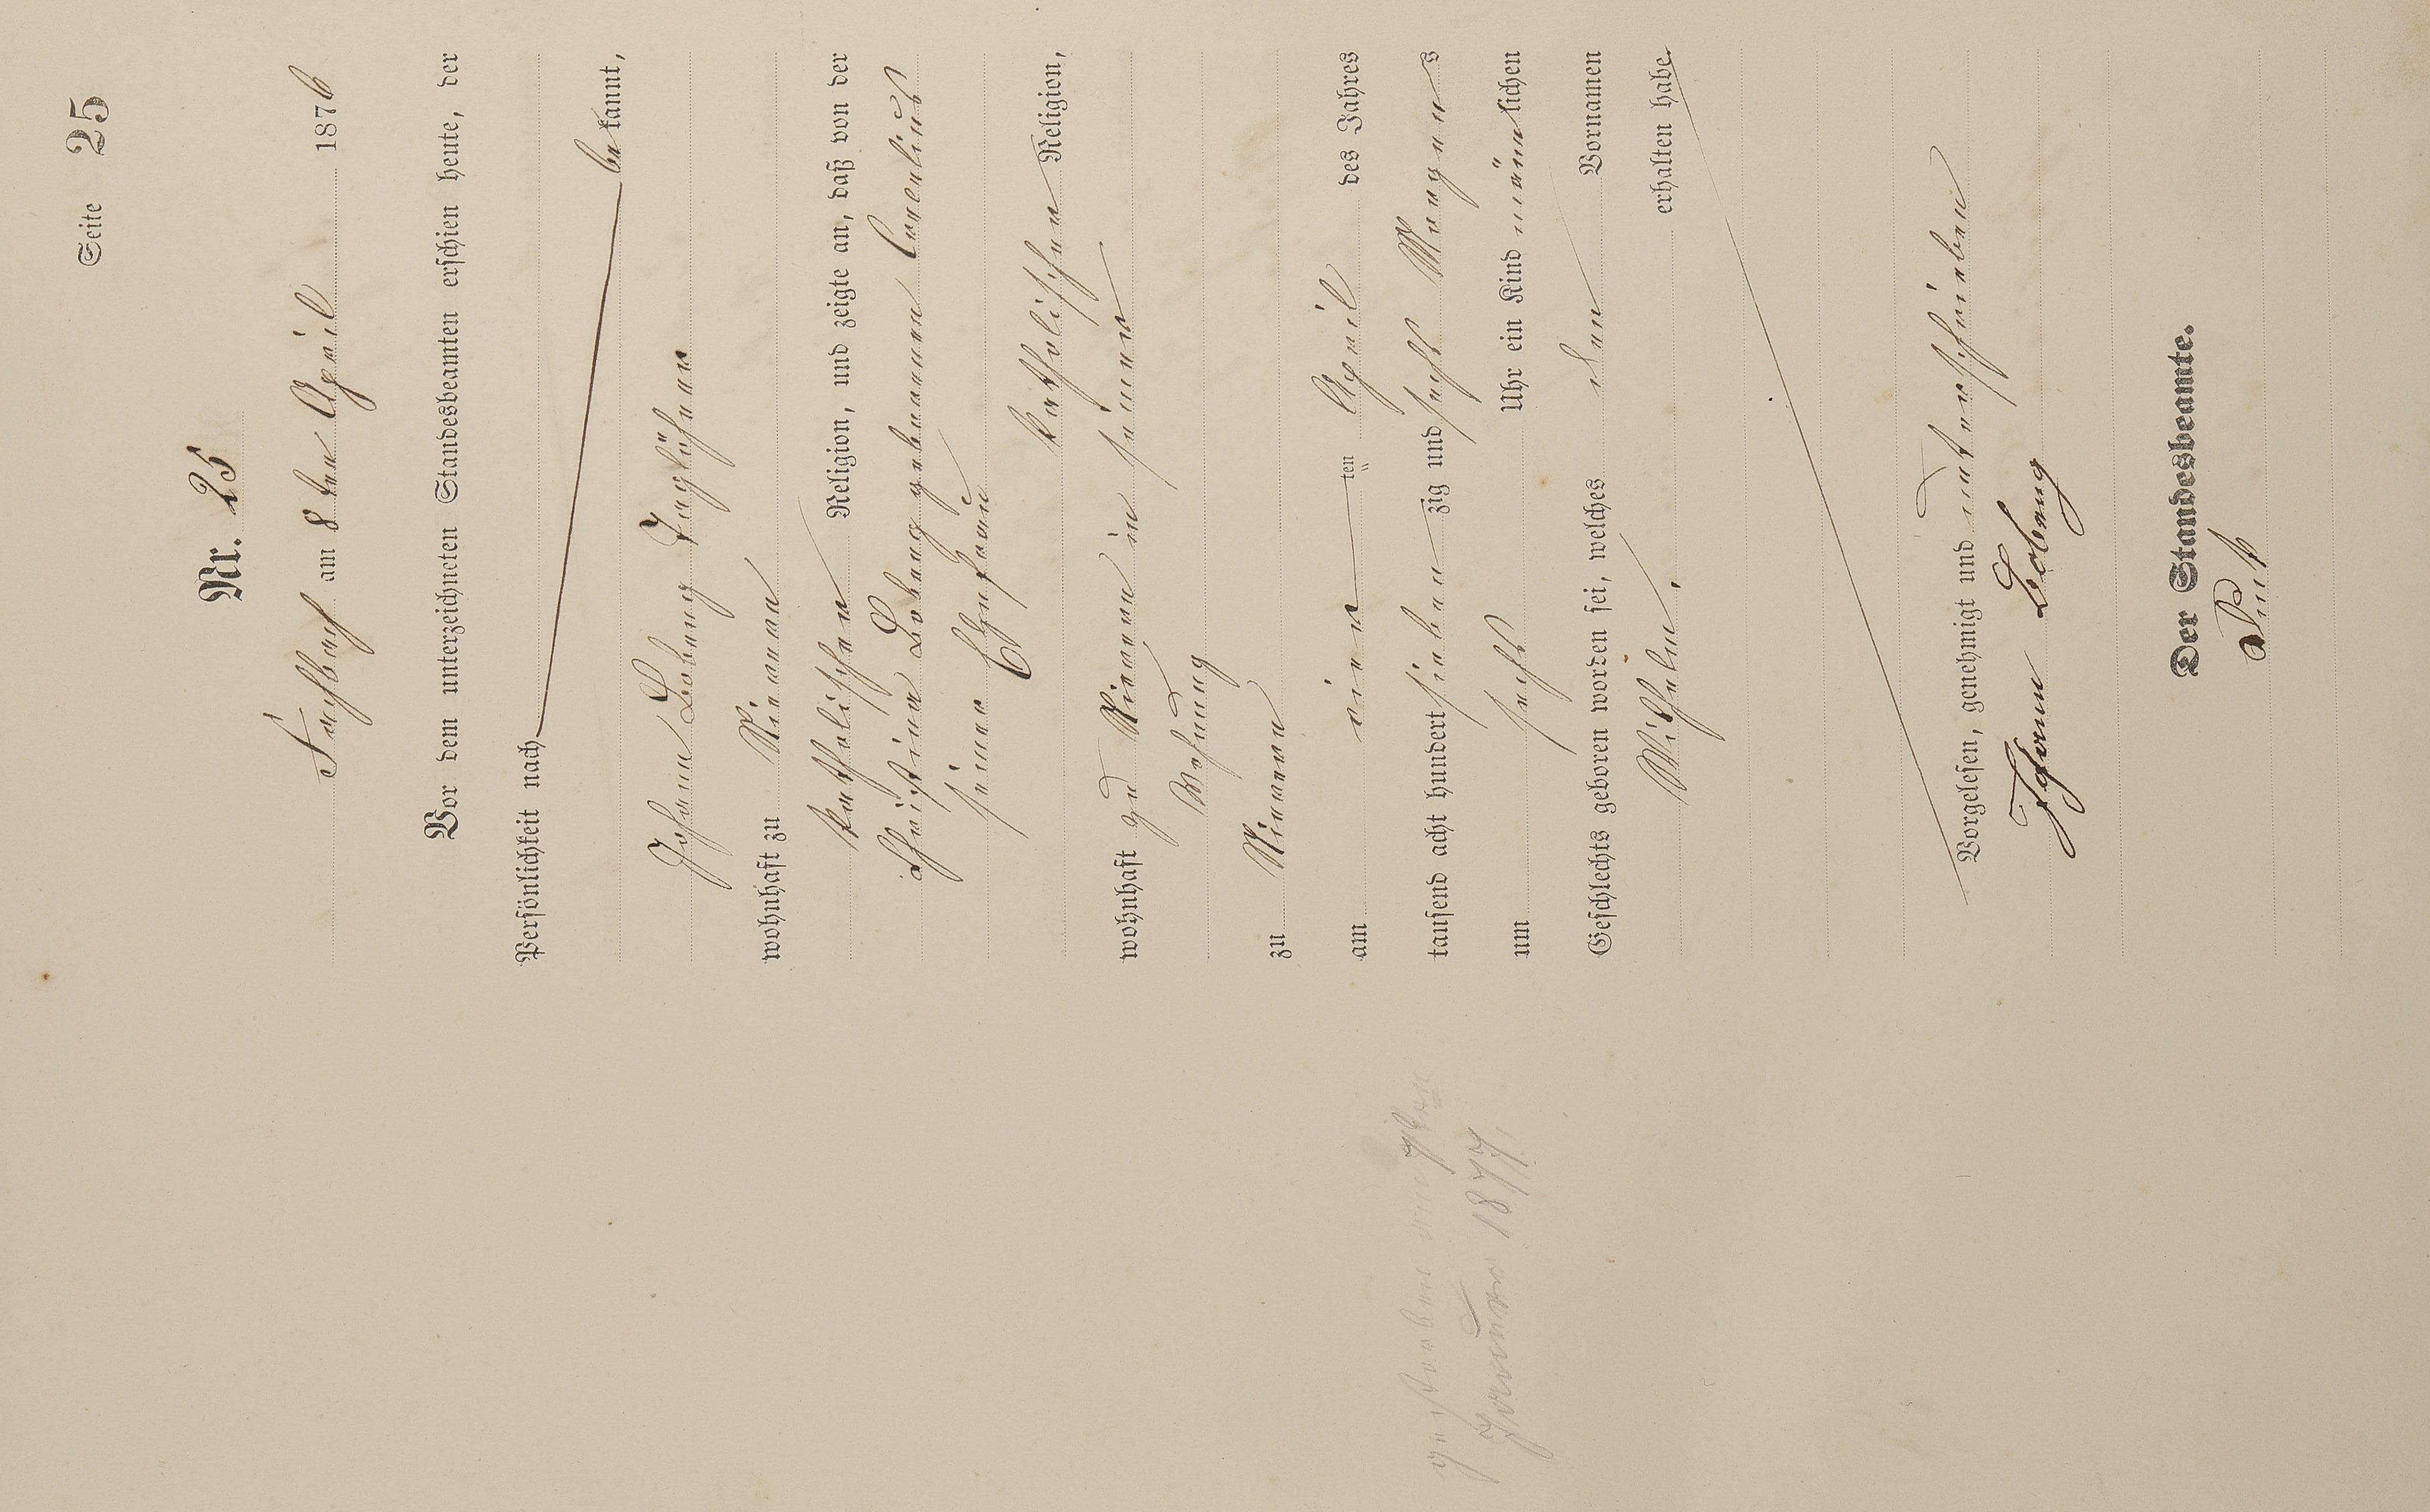 Seite 25
Nr. 25
Fachbach am 8ten April 1876
Vor dem unterzeichneten Standesbeamten erschien heute, der
Persönlichkeit nach
bekannt,
Johann Taglöhner
wohnhaft zu Nievern
katholischer Religion, und zeigte an, daß von der
Christina geborenen
seiner Ehefrau
katholischer Religion,
wohnhaft zu Nievern in seiner
Wohnung
zu Nievern
am ten April des Jahres
tausend acht hundert siebenzig und sechs Morgens
um sechs Uhr ein Kind männlichen
Geschlechts geboren worden sei, welches den Vornamen
Wilhelm. erhalten habe.
Vorgelesen, genehmigt und unterschrieben
Johann
Der Standesbeamte.
gestorben am 7ten
Januar 1877.